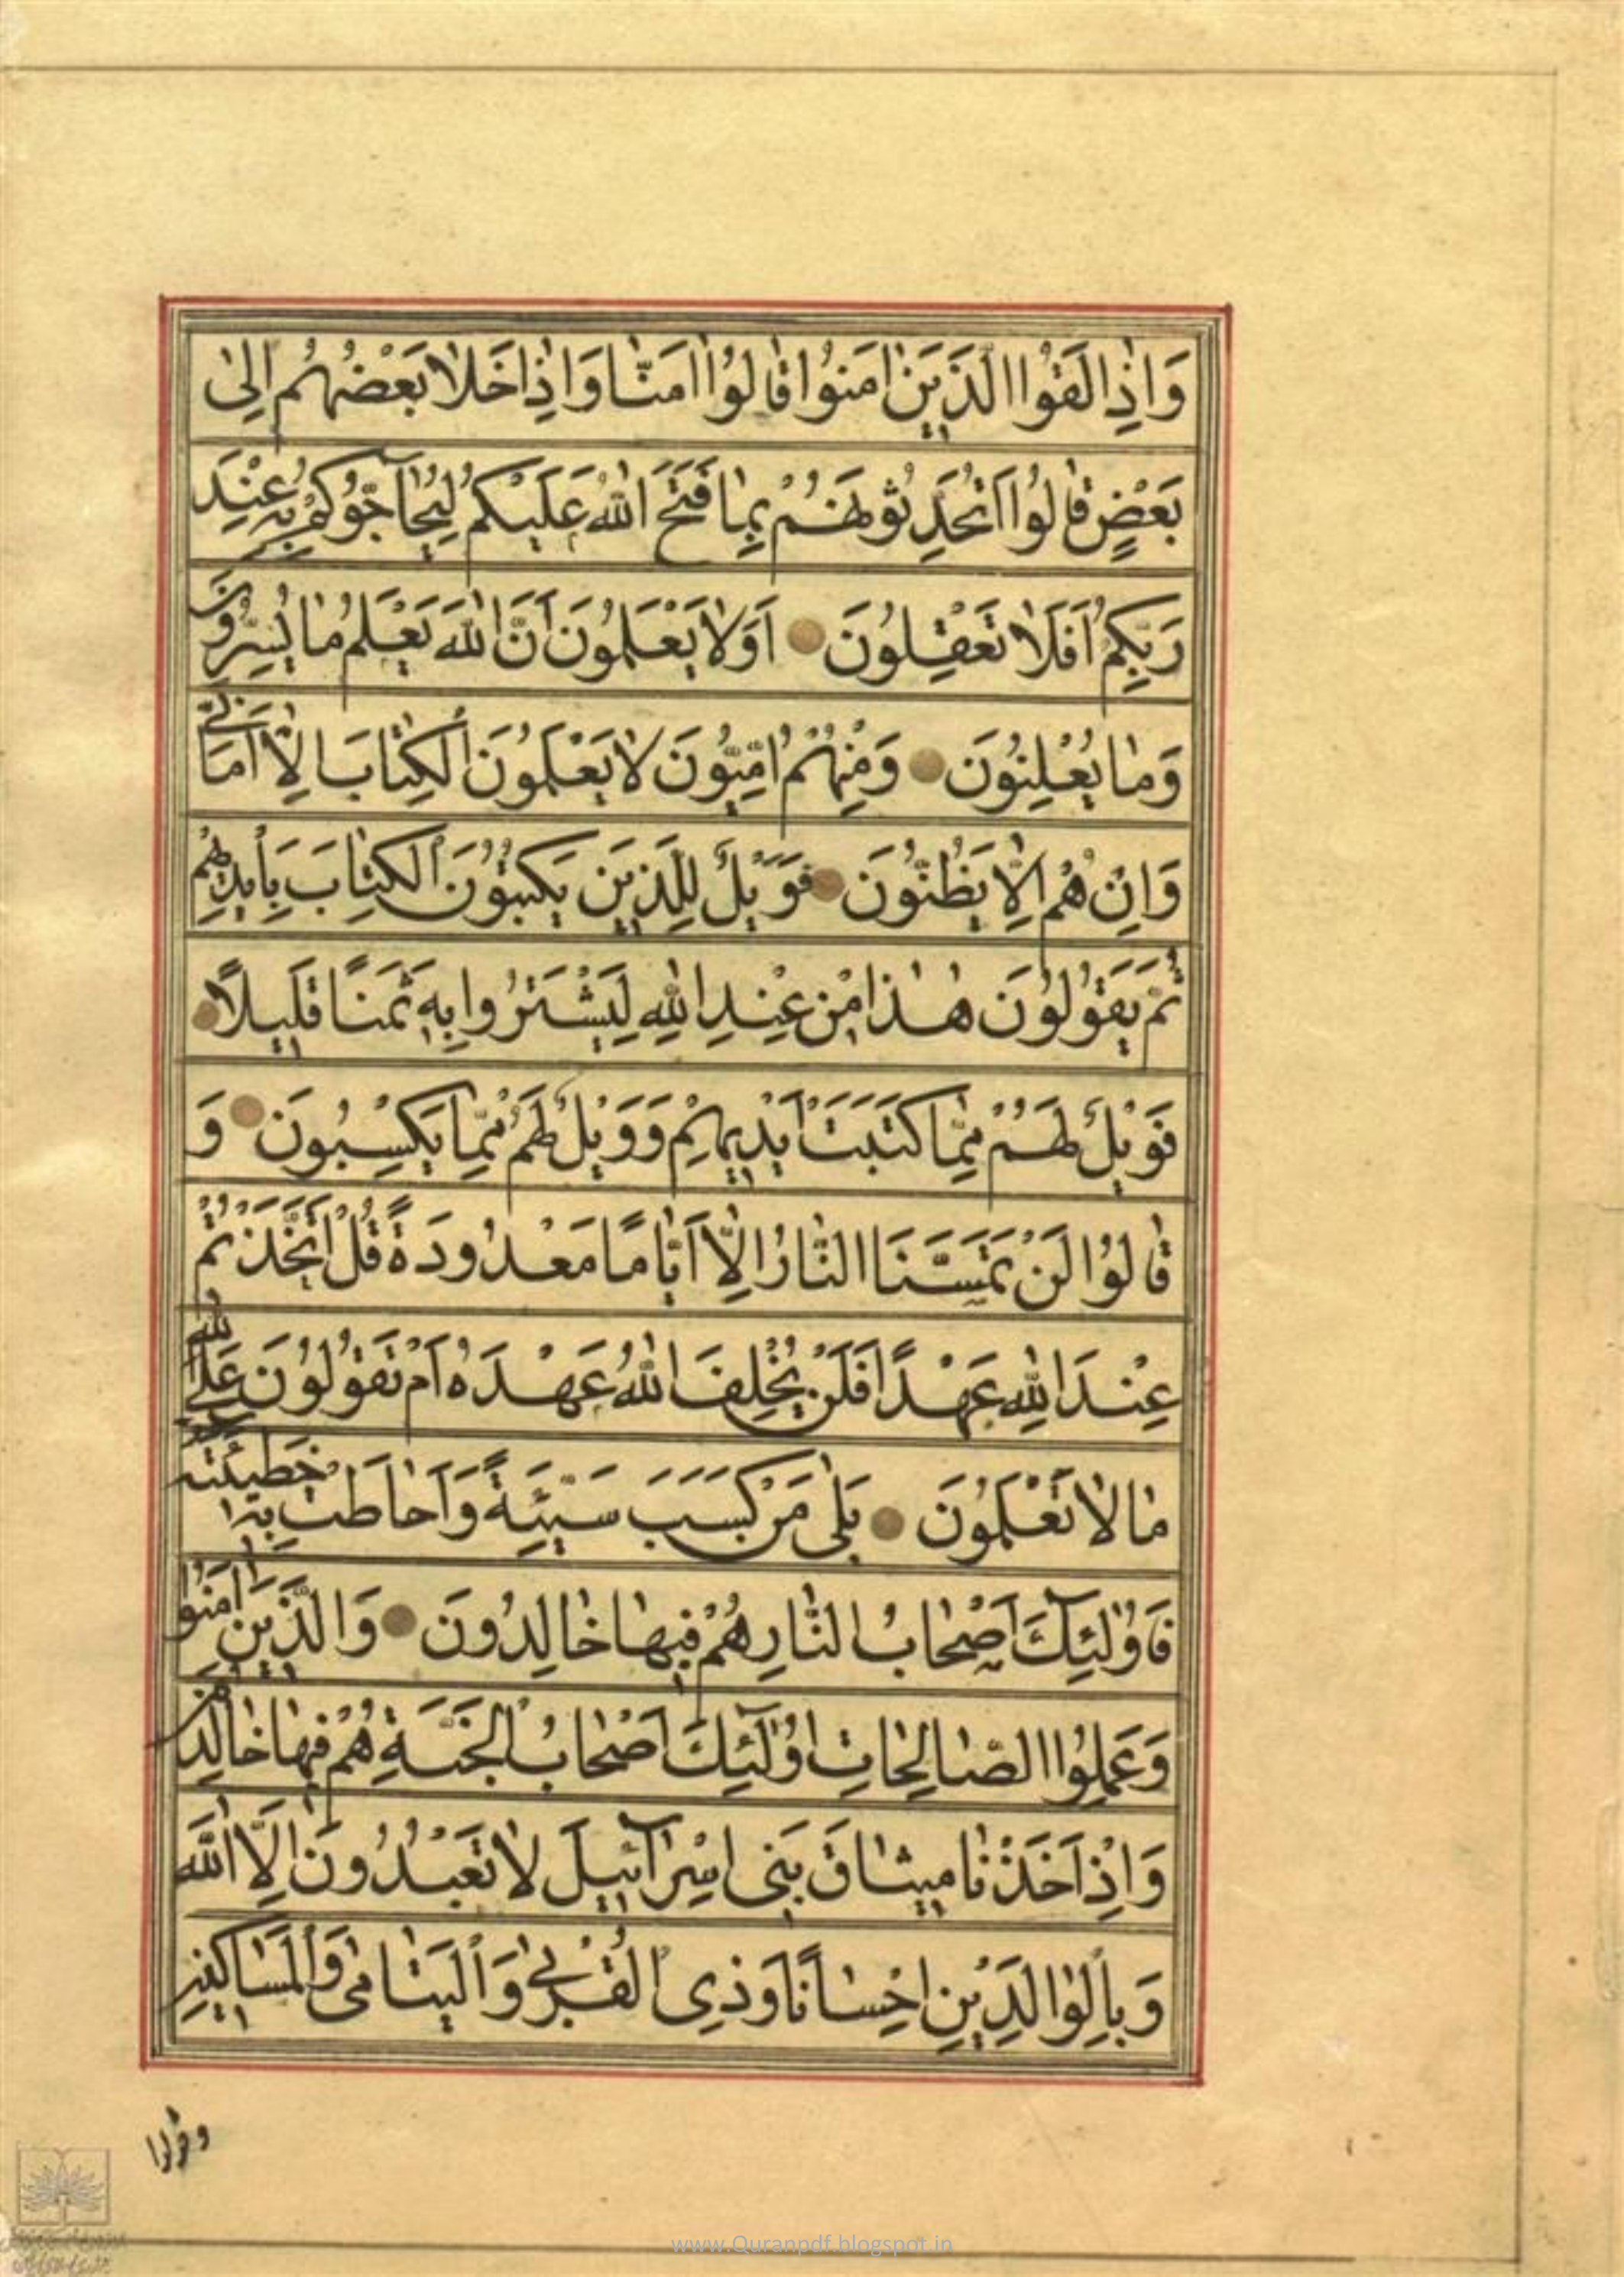 وَاِذٰا لَقُوا الَّذَيِنَ اٰمَنُوُا قٰالُوُا اٰمَنّٰا وَاِذٰا خَلٰا بَعْضُهُم اِلىٰ
بَعْضٍ قٰالُوُا اَتُحَدِّثُونَهُمْ بِمٰا فَتَحَ اللّٰهُ عَلَيْكُمْ لِيُحٰاۤجّوُكُمْ بِهِ عِنْدَ
رَبِّكُمْ اَفَلٰا تَعْقِلُونَ اَوَلٰا يَعْلَمُونَ اَنَّ اللّٰهَ يَعْلَمُ مٰا يُسِرُّونَ
وَمٰا يُعْلِنُونَ وَمِنْهُمْ اُمِّيُّونَ لٰا يَعْلَمُونَ الْكِتٰابَ اِلّٰا اَمٰانِيَّ
وَاِنْ هُمْ اِلّٰا يَظُنُّونَ فَوَيْلٌ لِلَّذيِنَ يَكْتُبُونَ الْكِتٰابَ بِاَيْديِهِمْ
ثُمَّ يَقُولُونَ هٰذٰا مِنْ عِنْدِ اللّٰهِ لِيَشْتَرُوا بِهِ ثَمَنًا قَليِلًا
فَوَيْلٌ لَهُمْ مِمّٰا كَتَبَتْ اَيْديِهِمْ وَوَيْلٌ لَهُمْ مِمّٰا يَكْسِبُونَ وَ
قٰالُوُا لَنْ تَمَسَّنَا النّٰارُ اِلّٰا اَيّٰامًا مَعْدُودَةً قُلْ اَتَّخَذْتُمْ
عِنْدَ اللّٰهِ عَهْدًا فَلَنْ يُخْلِفَ اللّٰهُ عَهْدَهُ اَمْ تَقُولُونَ عَلَى اللّٰهِ
مٰا لٰا تَعْلَمُونَ بَلٰى مَنْ كَسَبَ سَيِّئَةً وَاَحٰاطَتْ بِهِ خَطيِئَتُهُ
فَاُولٰۤئِكَ اَصْحٰابُ النّٰارِ هُمْ فيِهٰا خٰالِدُونَ وَالَّذيِنَ اٰمَنُوا
وَعَمِلُوا الصّٰالِحٰاتِ اُولٰۤئِكَ اَصْحٰابُ الْجَنَّةِ هُمْ فيِهٰا خٰالِدُونَ
وَاِذْ اَخَذْنٰا ميِثٰاقَ بَنيِ اِسْرٰاۤئيِلَ لٰا تَعْبُدُونَ اِلَّا اللّٰهَ
وَبِالْوٰالِدَيْنِ اِحْسٰانًا وَذِى الْقُرْبىٰ وَالْيَتٰامىٰ وَالْمَسٰاكيِنِ
وقولوا
www.Quranpdf.blogspot.in